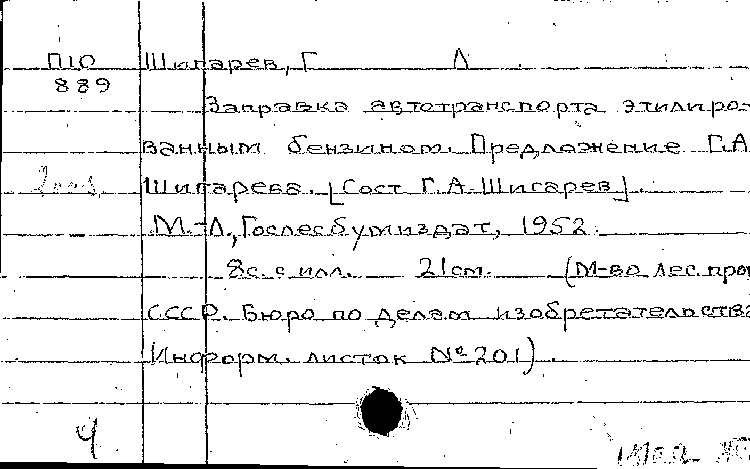 П10 Шигарев, Г А
889
Заправка автотранспорта этилиро-
ванным бензином. Предложение Г.А
Шигарева. [Сост Г.А. Шигарев].
М.-Л., Гослесбумиздат, 1952.
8с. с илл. 21см. (М-во лес. пром
СССР. Бюро по делам изобретательства
Информ. листок № 201).
4